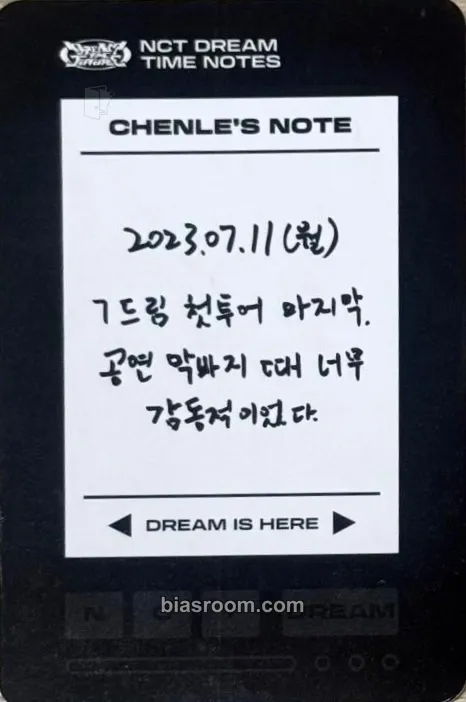 NCT DREAM
TIME NOTES
CHENLE'S NOTE
2023.07.11 (월)
7드림 첫투어 마지막.
공연 막빠지 때 너무
감동적이었다.
DREAM IS HERE
biasroom.com
N C T DREAM